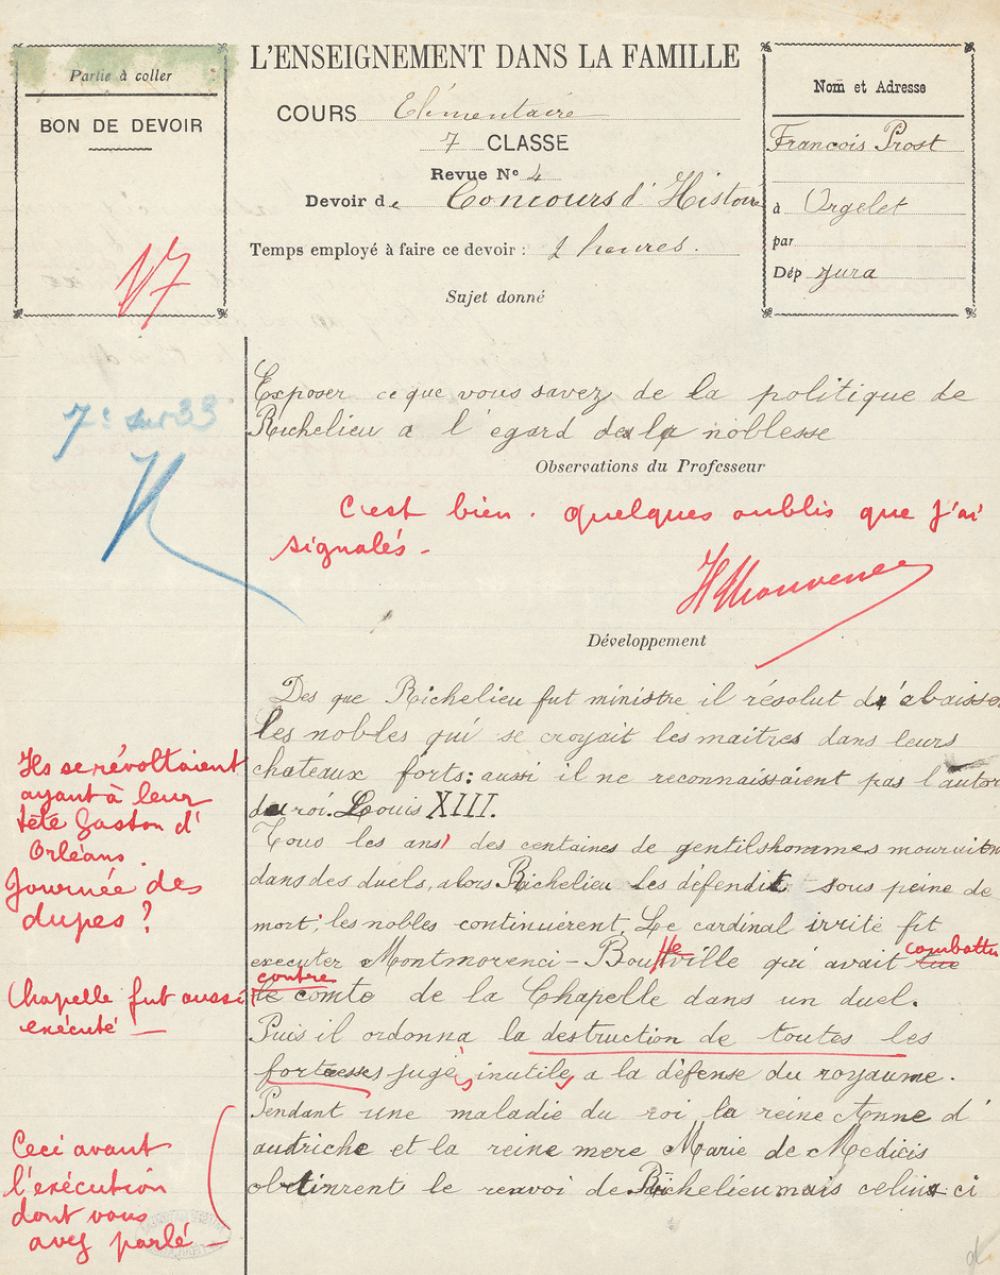 Partie à coller
BON DE DEVOIR
17
L'ENSEIGNEMENT DANS LA FAMILLE
COURS Elémentaire
7 CLASSE
Revue Nº 4
Devoir de Concours d' Histoire
Temps employé à faire ce devoir : 2 heures.
Sujet donné
Nom et Adresse
Francois Prost
à Orgelet
par
Dép Jura
7e sur 33
Exposer ce que vous savez de la politique de
Richelieu a l' egard de la noblesse
Observations du Professeur
C'est bien. quelques oublis que j'ai
signalés -
Développement
Des que Richelieu fut ministre il résolut d'abaisser
les nobles qui se croyait les maitres dans leurs
chateaux forts: aussi il ne reconnaissaient pas l'autor
du roi. Louis XIII.
Tous les ans, des centaines de gentilshommes mouraient
dans des duels, alors Richelieu les défendit sous peine de
mort; les nobles continuèrent. Le cardinal irrité fit
executer Montmorenci - Boutteville qui avait tue combattu
le contre comte de la Chapelle dans un duel.
Puis il ordonna la destruction de toutes les
forteresses jugés inutiles a la défense du royaume.
Pendant une maladie du roi la reine Anne d'
autriche et la reine mere Marie de Medicis
obtinrent le renvoi de Richelieu mais celui ci
Ils se révoltaient
ayant à leur
tête Gaston d'
Orléans.
Journée des
dupes ?
Chapelle fut aussi
exécuté -
Ceci avant
l'exécution
dont vous
avez parlé -